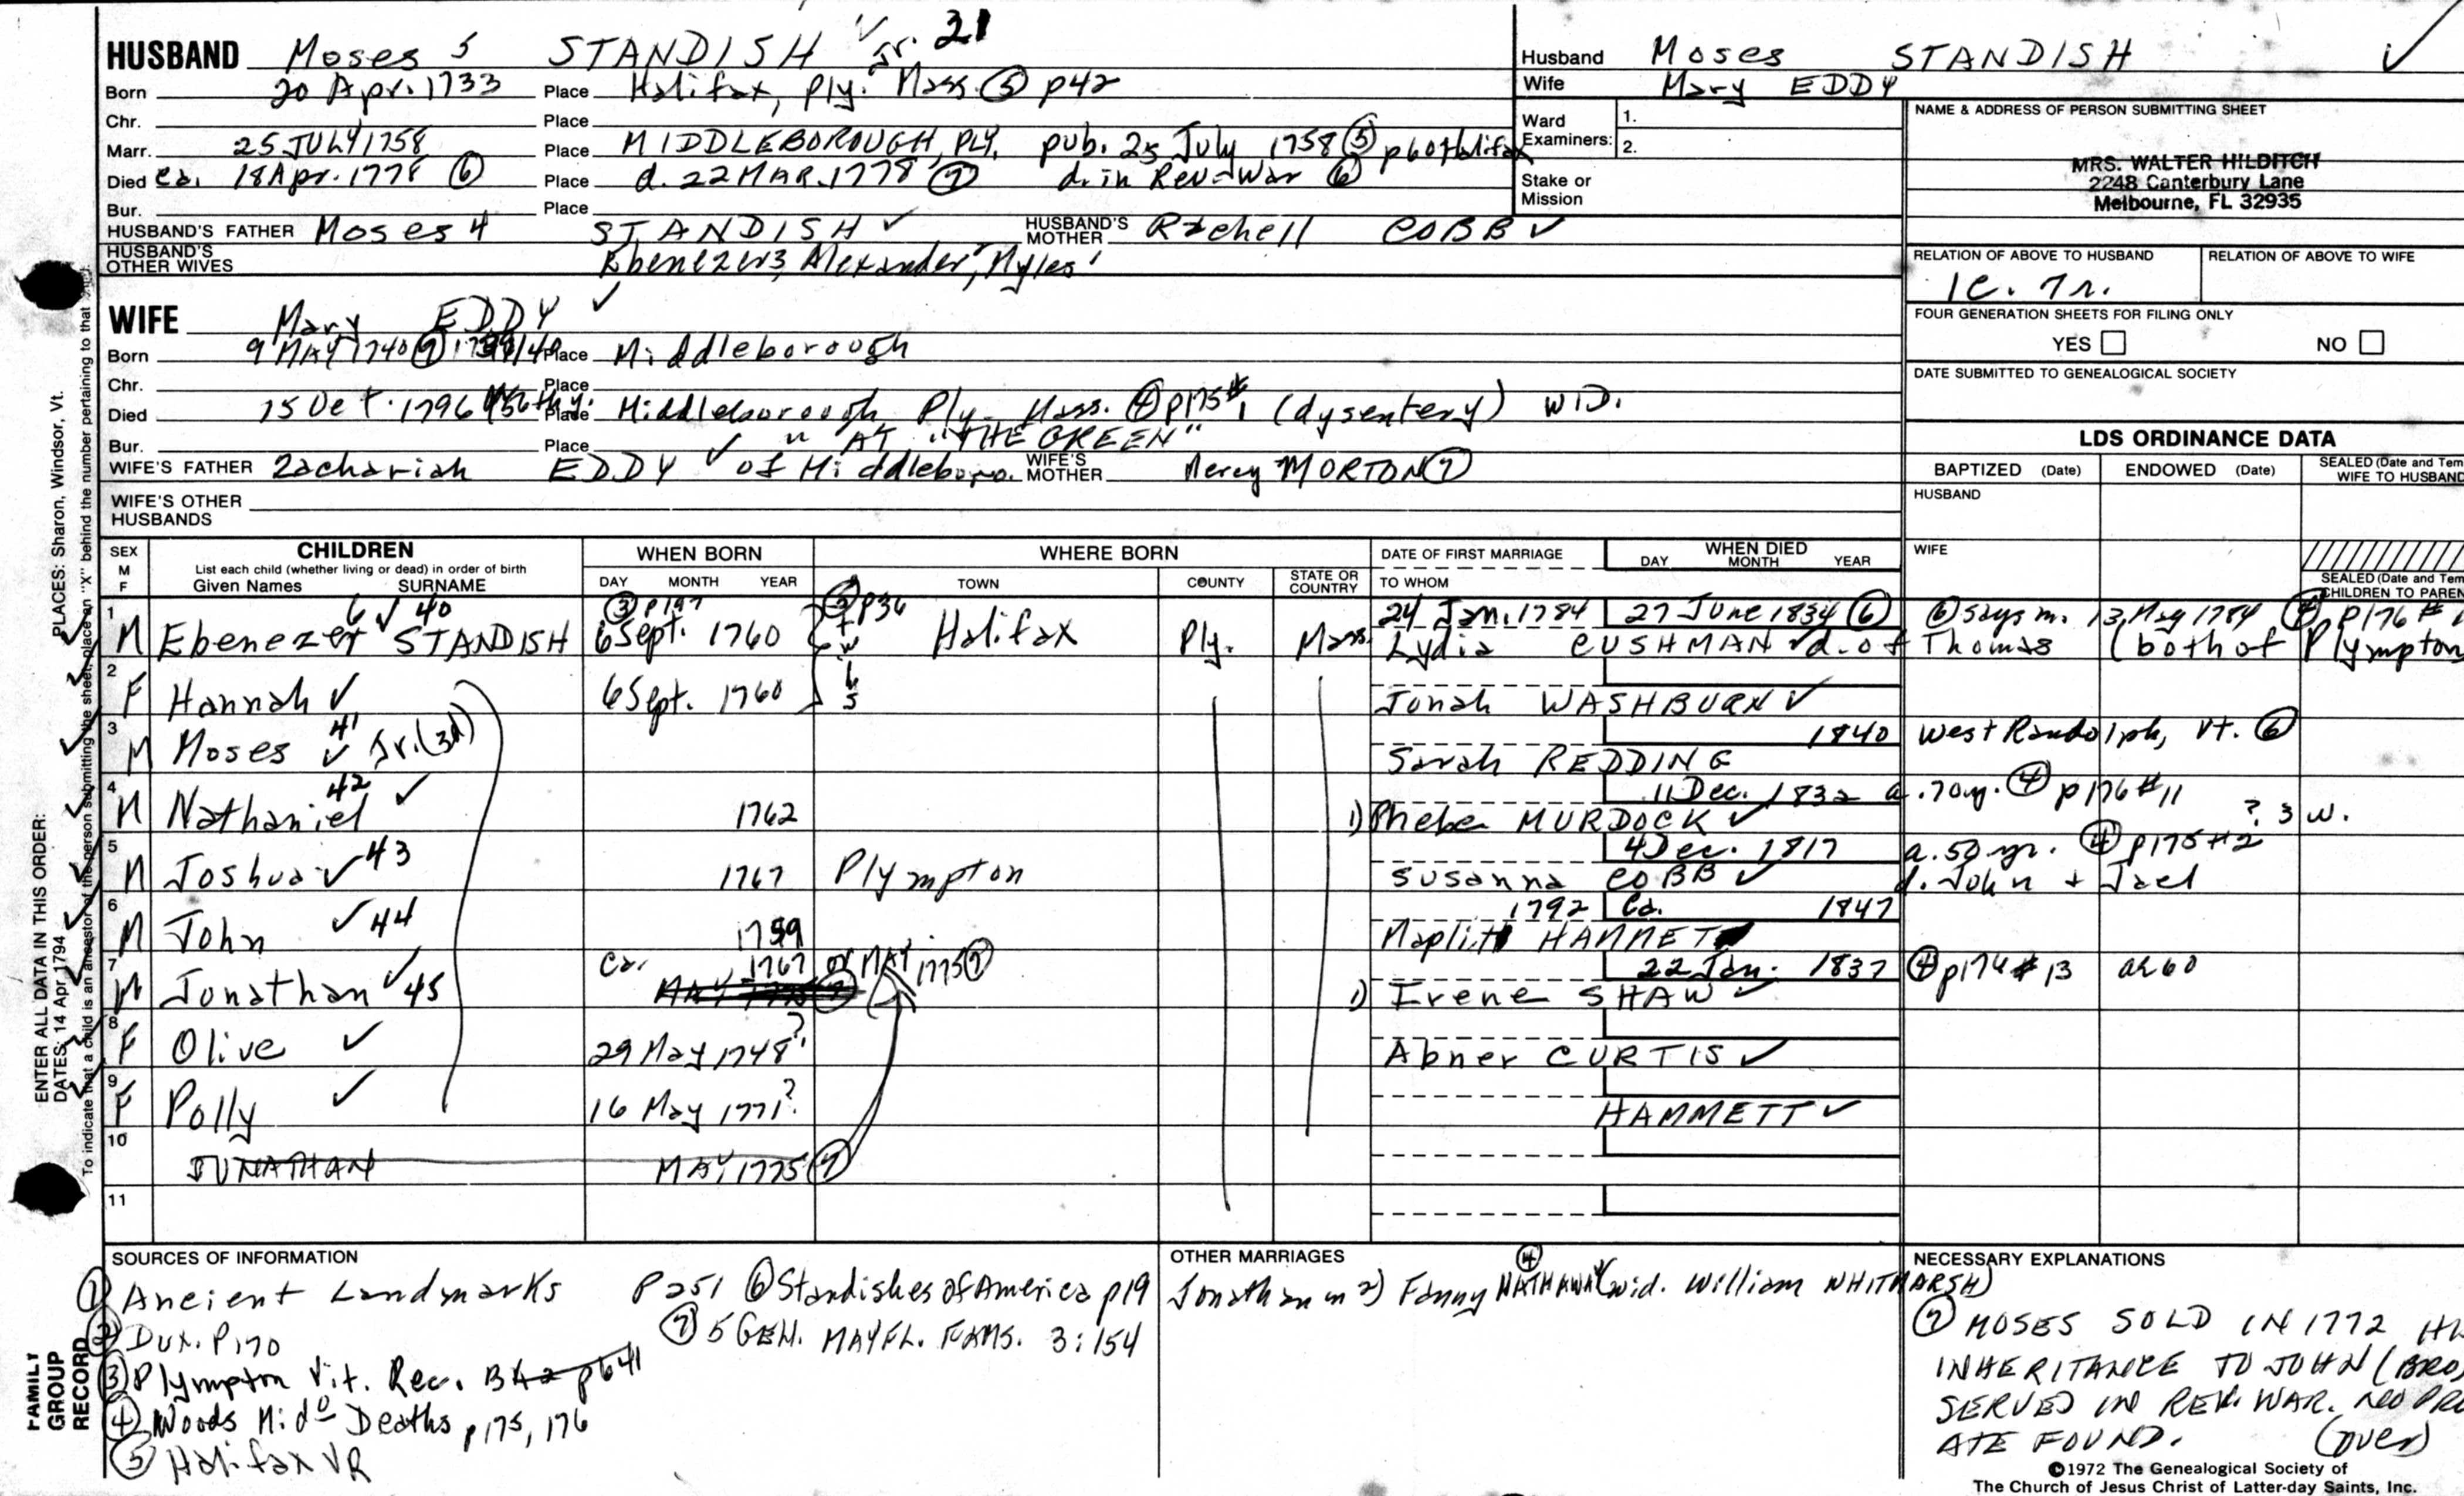 HUSBAND Moses 5 STANDISH Jr. 21
Born 20 Apr. 1733 Place Halifax, Ply. Mass. ⑤ p42
Chr. Place
Marr. 25 JULY 1758 Place MIDDLEBOROUGH, PLY. pub. 25 July 1758 ⑤ p60 Halifax
Died ca. 18 Apr. 1778 ⑥ Place d. 22 MAR. 1778 ⑦ d. in Rev. War ⑥
Bur. Place
HUSBAND'S FATHER Moses 4 STANDISH ✓ HUSBAND'S MOTHER Rachell COBB ✓
HUSBAND'S OTHER WIVES Ebenezer3, Alexander2, Myles1
Husband Moses STANDISH ✓
Wife Mary EDDY
Ward Examiners: 1.
2.
Stake or Mission
NAME & ADDRESS OF PERSON SUBMITTING SHEET
MRS. WALTER HILDITCH
2248 Canterbury Lane
Melbourne, FL 32935
RELATION OF ABOVE TO HUSBAND RELATION OF ABOVE TO WIFE
1c. 7r.
FOUR GENERATION SHEETS FOR FILING ONLY
YES NO
DATE SUBMITTED TO GENEALOGICAL SOCIETY
WIFE Mary EDDY ✓
Born 9 MAY 1740 ⑦ Place Middleborough
Chr. Place
Died 15 Oct. 1796 Place Middleborough Ply. Mass. ④ p175 #1 (dysentery) WID.
Bur. Place " AT "THE GREEN"
WIFE'S FATHER Zachariah EDDY ✓ of Middleboro. WIFE'S MOTHER Mercy MORTON ⑦
WIFE'S OTHER HUSBANDS
LDS ORDINANCE DATA
BAPTIZED (Date) ENDOWED (Date) SEALED (Date and Tem
WIFE TO HUSBAND
HUSBAND
WIFE
SEALED (Date and Tem
CHILDREN TO PAREN
SEX M F CHILDREN List each child (whether living or dead) in order of birth Given Names SURNAME
WHEN BORN DAY MONTH YEAR
WHERE BORN TOWN COUNTY STATE OR COUNTRY
DATE OF FIRST MARRIAGE TO WHOM
WHEN DIED DAY MONTH YEAR
1 M Ebenezer 6 ✓ 40 STANDISH ③ p197 6 Sept. 1760 p36 Halifax Ply. Mass 24 Jan. 1784 27 June 1834 ⑥ ⑥ says m. 13 May 1784 ④ p176 #1
Lydia CUSHMAN ✓ d. of Thomas (both of Plympton
2 F Hannah ✓ 6 Sept. 1760 Jonah WASHBURN ✓
3 M Moses 41 ✓ Jr. (3d) 1840 West Randolph, Vt. ⑥
Sarah REDDING
4 M Nathaniel 42 ✓ 1762 11 Dec. 1832 a. 70y. ④ p176 #11
1) Phebe MURDOCK ✓ ? 3 w.
5 M Joshua ✓ 43 1767 Plympton 4 Dec. 1817 a. 50 yr. ④ p175 #2
Susanna COBB ✓ d. John + Jael
6 M John ✓ 44 1759 1792 Ca. 1847
HAMMET
7 M Jonathan ✓ 45 Ca. 1767 or MAY 1775 ⑦ 22 Jan. 1837 ④ p176 #13 ae 60
1) Irene SHAW ✓
8 F Olive ✓ 29 May 1748? Abner CURTIS ✓
9 F Polly ✓ 16 May 1771? HAMMETT ✓
10 JONATHAN MAY 1775 ⑦
11
SOURCES OF INFORMATION
① Ancient Landmarks P251 ⑥ Standishes of America p19
② Dux. P170 ⑦ 5 GEN. MAYFL. FAMS. 3:154
③ Plympton Vit. Rec. Bk 2 p641
④ Woods Mido Deaths p175, 176
⑤ Halifax VR
OTHER MARRIAGES
Jonathan m 2) Fanny HATHAWAY ④ (wid. William WHITMARSH)
NECESSARY EXPLANATIONS
⑦ MOSES SOLD IN 1772
INHERITANCE TO JOHN (BRO)
SERVED IN REV. WAR. NO PRO
ATE FOUND. (over)
©1972 The Genealogical Society of
The Church of Jesus Christ of Latter-day Saints, Inc.
ENTER ALL DATA IN THIS ORDER:
DATES: 14 Apr 1794 PLACES: Sharon, Windsor, Vt.
To indicate that a child is an ancestor of the person submitting the sheet, place an "X" behind the number pertaining to that
FAMILY GROUP RECORD